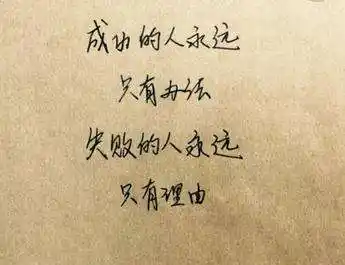 成功的人永远
只有办法
失败的人永远
只有理由